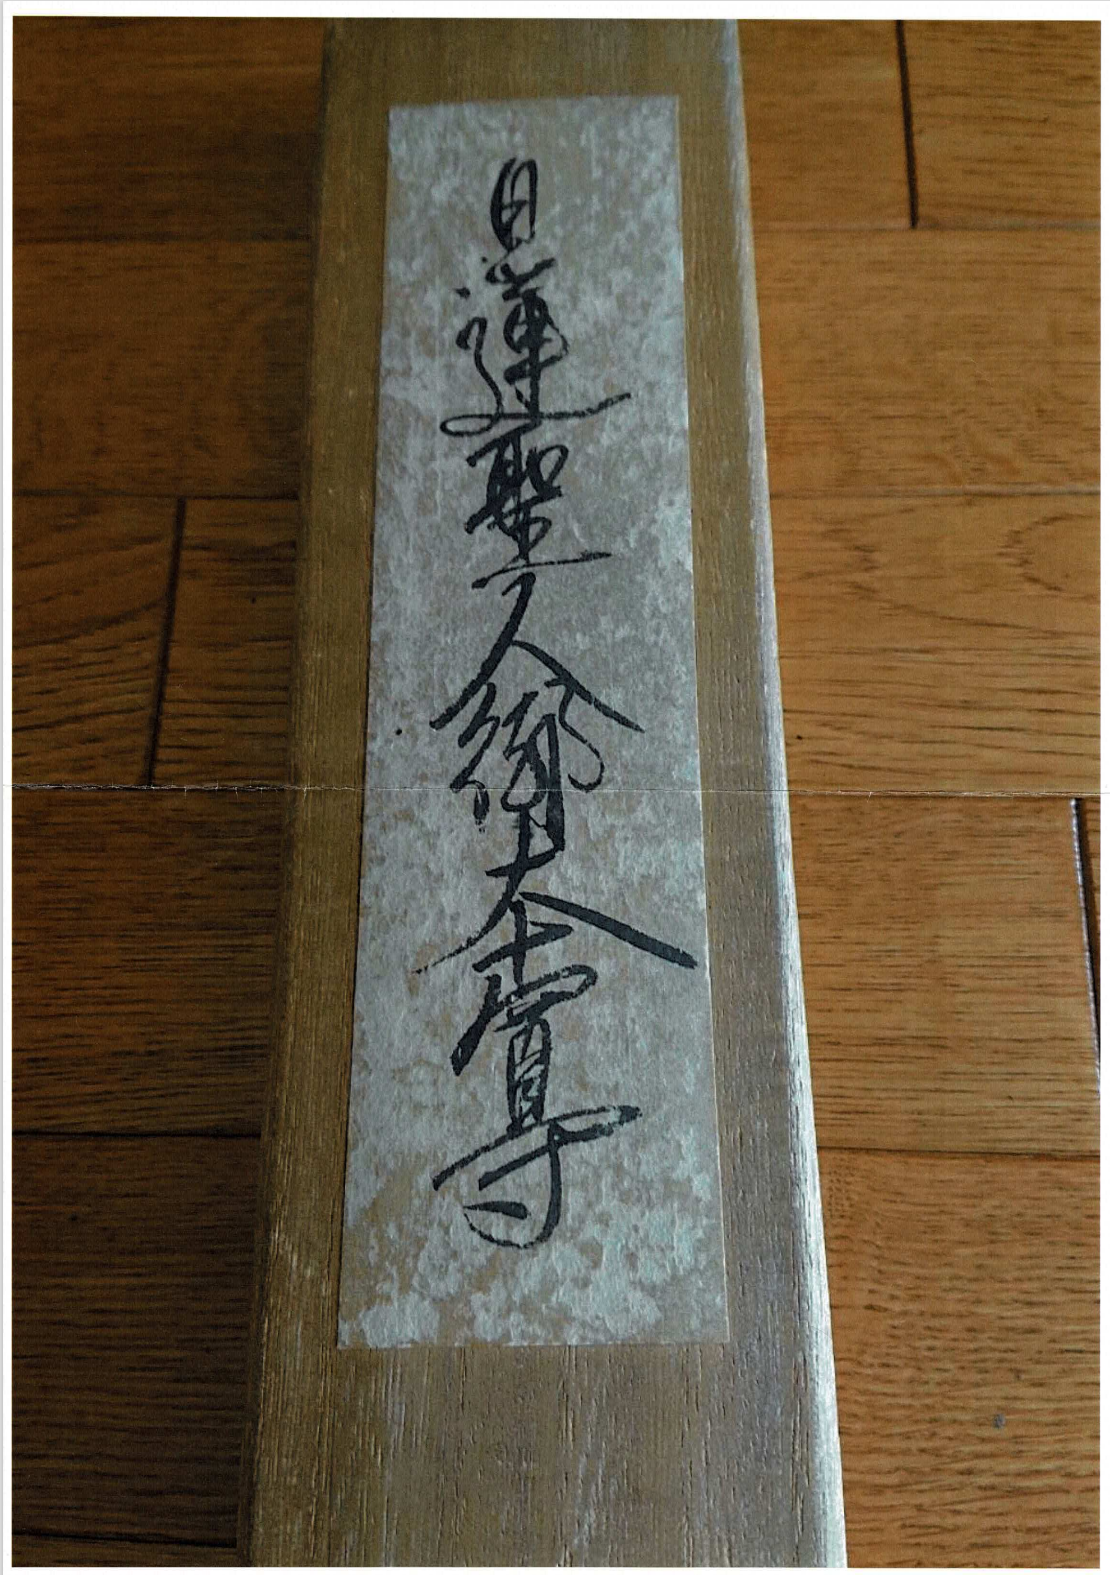 日蓮聖人御本尊